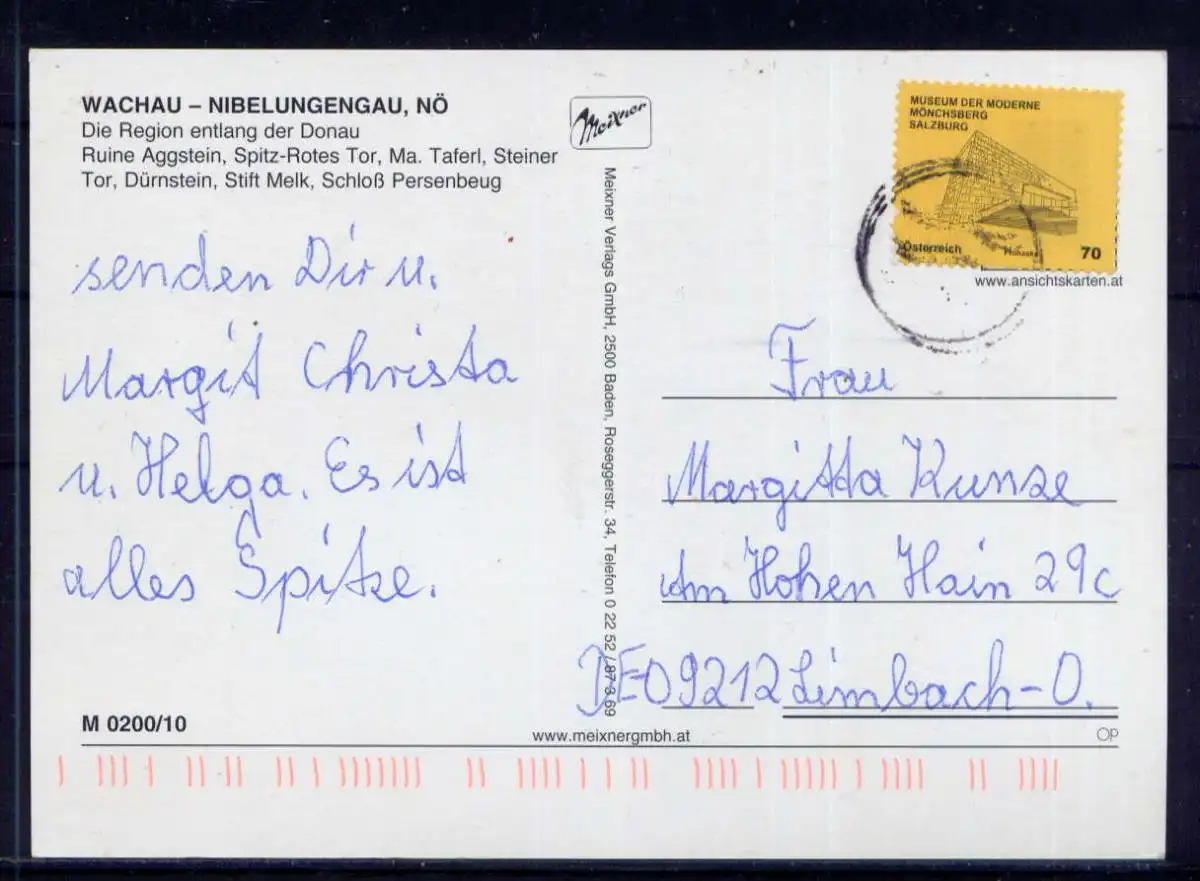 WACHAU – NIBELUNGENGAU, NÖ
Die Region entlang der Donau
Ruine Aggstein, Spitz-Rotes Tor, Ma. Taferl, Steiner
Tor, Dürnstein, Stift Melk, Schloß Persenbeug
senden Dir u.
Margit Christa
u. Helga. Es ist
alles Spitze.
M 0200/10
Meixner
Meixner Verlags GmbH, 2500 Baden, Roseggerstr. 34, Telefon 0 22 52 / 87 3 69
www.meixnergmbh.at
MUSEUM DER MODERNE
MÖNCHSBERG
SALZBURG
Österreich
70
www.ansichtskarten.at
Frau
Margitta Kunze
Am Hohen Hain 29c
DE09212 Limbach-O.
OP